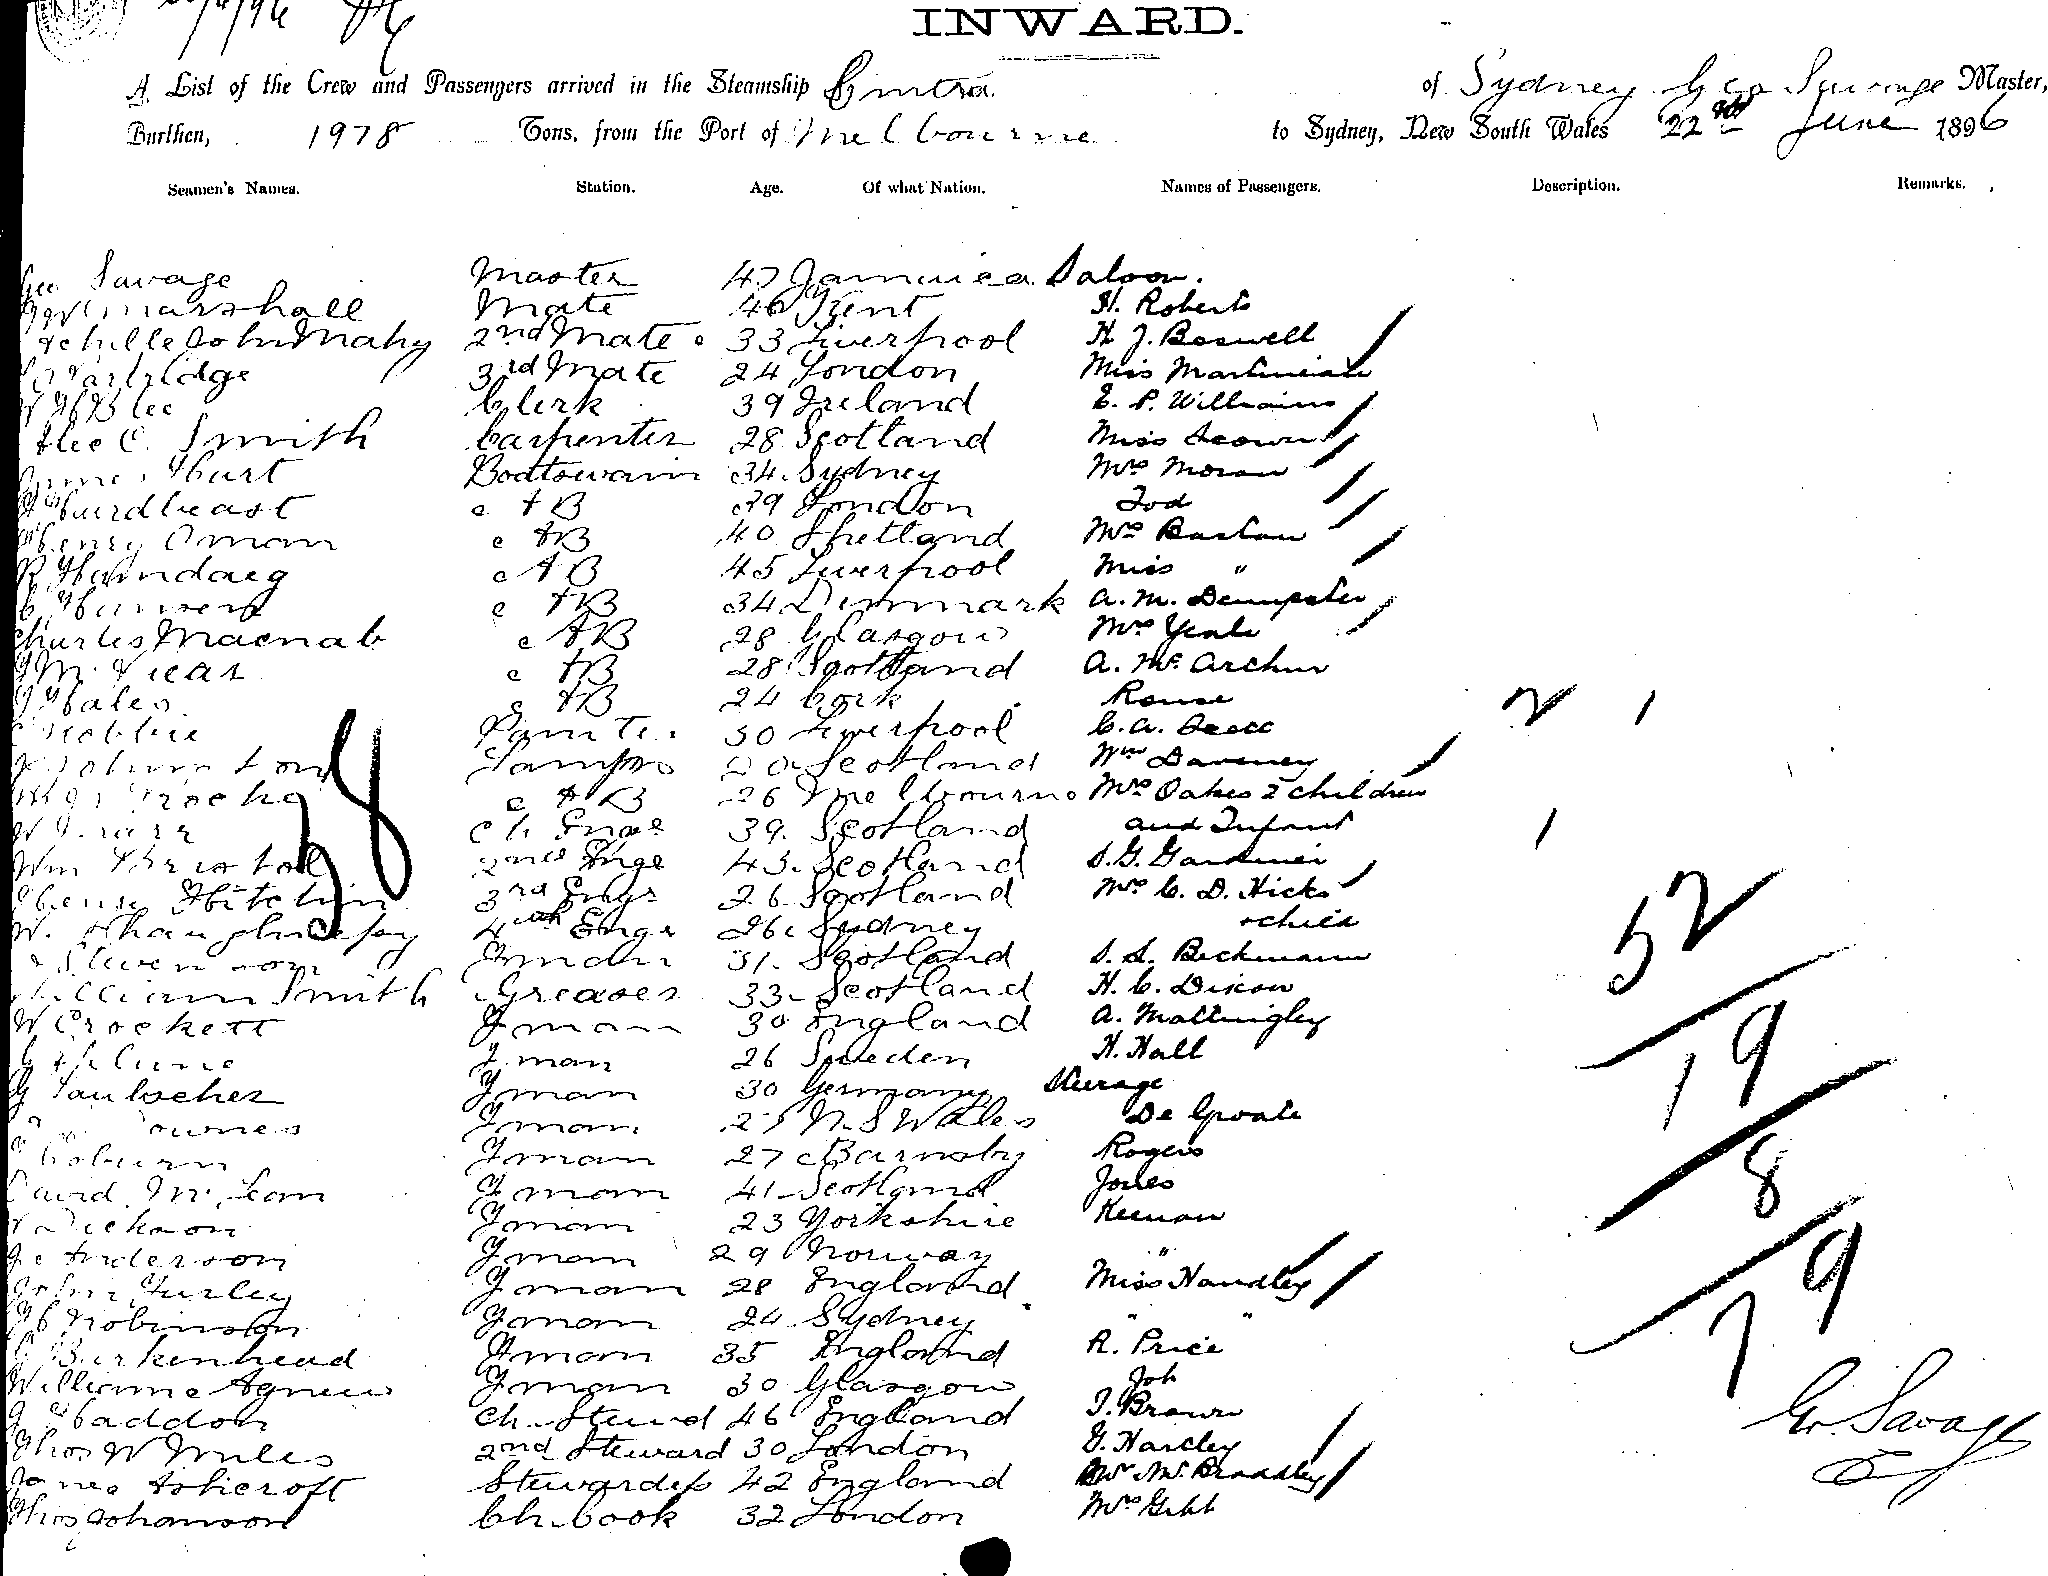 INWARD.
A List of the Crew and Passengers arrived in the Steamship Cintra of Sydney Geo Savage Master,
Burthen, 1978 Tons, from the Port of Melbourne to Sydney, New South Wales 22nd June 1896
Seamen's Names. Station. Age. Of what Nation. Names of Passengers. Description. Remarks.
Geo Savage Master 47 Jamaica Saloon.
Marshall Mate 46 Kent H. Roberts
Achille John Mahy 2nd Mate 33 Liverpool H. J. Boswell
Partridge 3rd Mate 24 London Miss
Clerk 39 Ireland E. P. Williams
Alec C. Smith Carpenter 28 Scotland Miss
James Hurt Boatswain 34 Sydney Mrs Moran
AB 29 London Tod
Henry Oman AB 40 Shetland Mrs Bastow
AB 45 Liverpool Miss "
C Hansen AB 34 Denmark A. M. Dempster
Charles Macnab AB 28 Glasgow Mrs
AB 28 Scotland A. Mc Arthur
Hales AB 24 Cork Rouse 2 1
30 Liverpool C. A.
Johnston Lamps 20 Scotland Wm Daveney
AB 26 Melbourne Mrs Oakes 2 children
38
W Ch. Enge 39 Scotland and Infant 1
Wm Bristol 2nd Enge 43 Scotland S. G. Gardiner
Henry Hitchin 3rd Engr 26 Scotland Mrs C. D. Hicks
W. Shaughnessy 4th Engr 26 Sydney + child
52
Stevenson 31 Scotland S. S. Beckmann
William Smith Greaser 33 Scotland H. C. Dixon
W Crockett Fman 30 England A. Mattingley
19
Fman 26 Sweden H. Hall
Fman 30 Germany Steerage
Fman N. S Wales De Groate
Coburn Fman 27 Barnsby Rogers
8
David McLean Fman 41 Scotland Jones
Dickson Fman 23 Yorkshire Keenan
Anderson Fman 29 Norway "
79
John Furley Fman 28 England Miss Handley
H Robinson Fman 24 Sydney " "
Birkenhead Fman 35 England R. Price
William Agnew Fman 30 Glasgow Job
Haddon Ch. Steward 46 England J. Brown
Thos W Miles 2nd Steward 30 London G. Hartley
Ashcroft Stewardess 42 England Bradley
Thos Johanson Ch. Cook 32 London Mrs Gibb
Geo. Savage